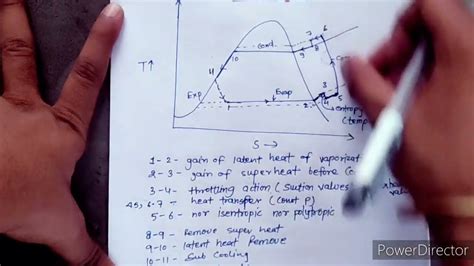 T↑
Cond.
10
9
8
7
6
11
Exp
Evap
1
2
3
4
5
entropy
S →
1-2- gain of latent heat of
2-3- gain of superheat before
3-4- throttling action (suction valves)
45, 6-7- heat transfer (const P)
5-6- nor isentropic nor polytropic
8-9- Remove super heat
9-10- latent heat Remove
10-11- Sub Cooling
PowerDirector